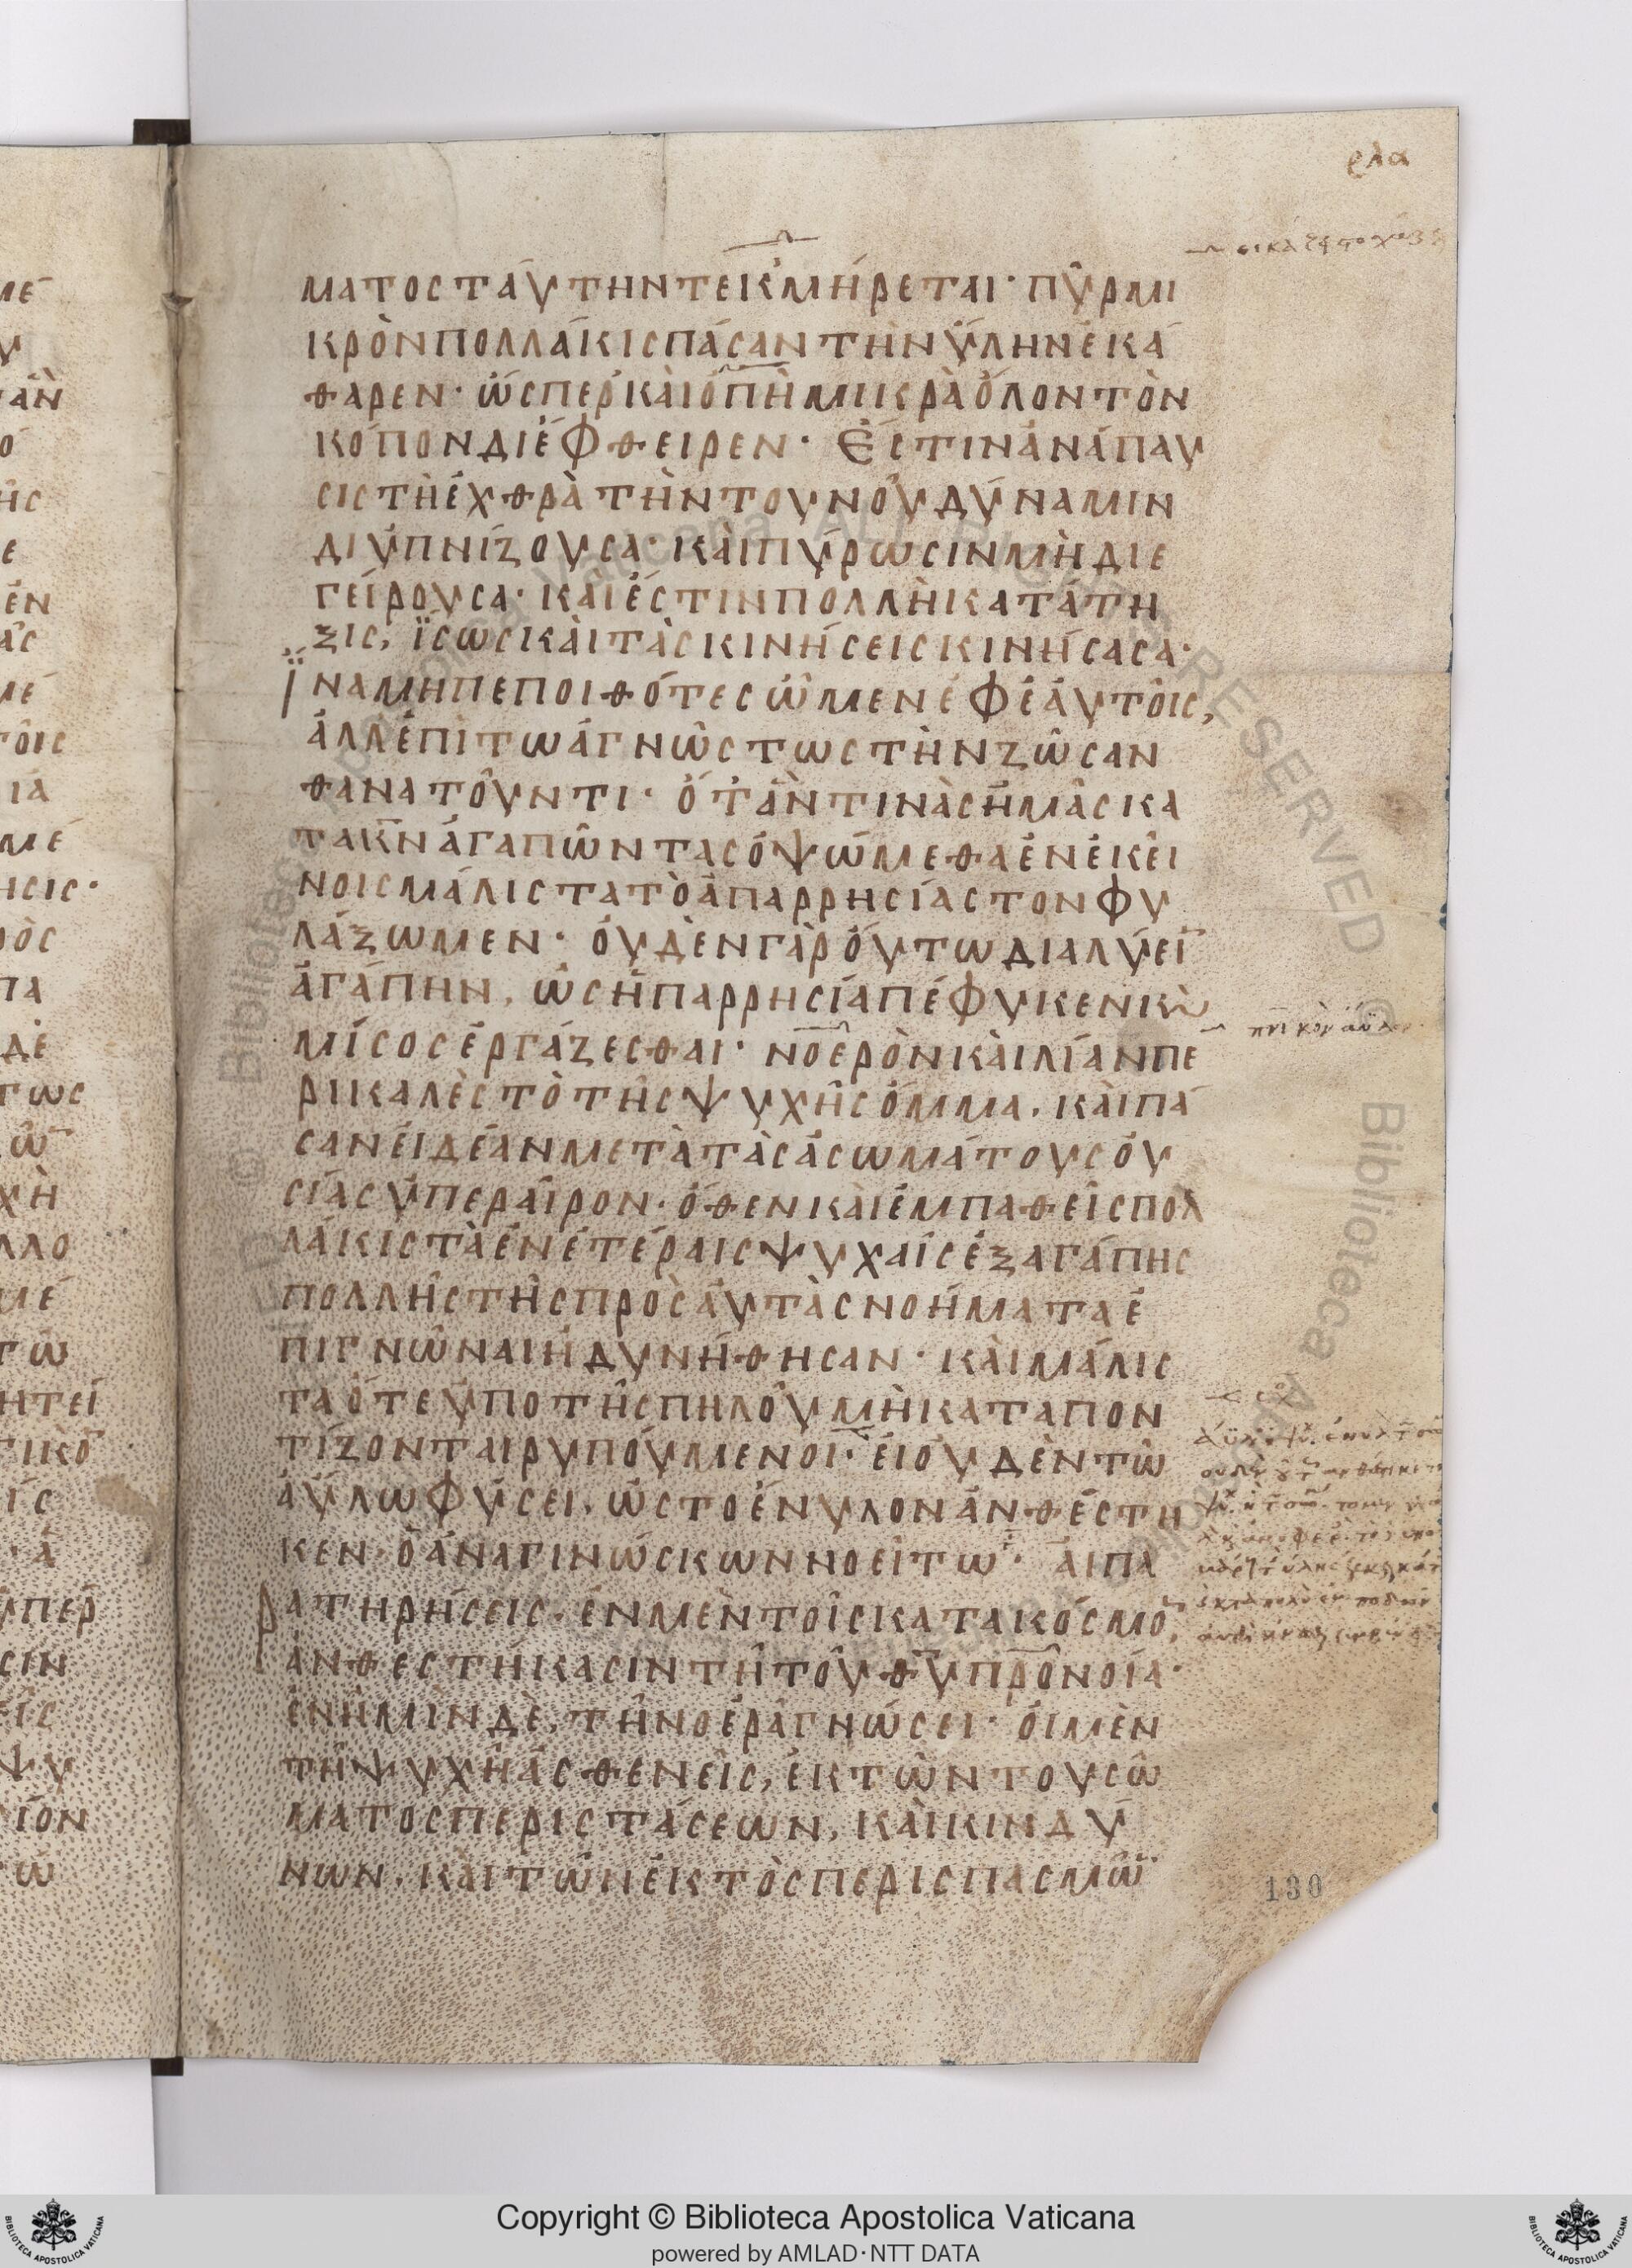 ρλα
ματοσ ταύτην τεκμήρεται· πῦρ μι
κρὸν πολλάκισ πάσαν τὴν ὕλην ἐκά
θαρεν· ὥσπερ καὶ ὀπὴ μικρὰ ὅλον τὸν
κόπον διέφθειρεν· Ἔστιν ἀνάπαυ
σισ τὴ ἐχθρὰ τὴν του νοῦ δύναμιν
διυπνίζουσα· καὶ πύρωσιν μὴ διε
γείρουσα· καὶ ἔστιν πολλὴ κατάτη
ξισ, ἴσωσ καὶ τὰσ κινήσεισ κινήσασα·
ἵνα μη πεποιθότεσ ὦμεν ἐφ ἑαυτοῖσ,
ἀλλ ἐπὶ τω ἀγνώστωσ τὴν ζῶσαν
θανατοῦντι· ὅτ ἂν τινὰσ ἡμᾶσ κα
τα κ̅ν̅ ἀγαπῶντασ ὀψώμεθα ἐν ἐκεί
νοισ μάλιστα τὸ ἀπαρρησίαστον φυ
λάξωμεν· ὀυδὲν γὰρ ὅυτω διαλύει
ἀγάπην, ὡσ ἡ παρρησία πέφυκεν κὺ
μίσοσ ἐργάζεσθαι· νοερὸν καὶ λίαν πε
ρικαλὲσ τὸ τῆσ ψυχῆσ ὄμμα, καὶ πᾶ
σαν εἰδέαν μετὰ τὰσ ἀσωμάτουσ ὀυ
σίασ ὑπεραῖρον· ὅθεν καὶ ἐμπαθεῖσ πολ
λάκισ τὰ ἐν ἑτέραισ ψυχαῖσ ἐξ αγάπησ
πολλῆσ τῆσ πρὸσ ἀυτὰσ νοήματα ἐ
πιγνῶναι ἠδυνήθησαν· καὶ μάλισ
τα ὅτε ὑπο τῆσ πηλοῦ μὴ καταπον
τίζονται ρυπούμενοι· εἰ οὐδὲν τῶ
ἀύλω φύσει, ὡσ το ἔνυλον ἀνθέστη
κεν· ὁ ἀναγινώσκων νοείτω· ἁι πα
ρατηρήσεισ, ἐν μὲν τοῖσ κατα κόσμο̅,
ἀνθεστήκασιν τῆ τοῦ θ̅υ̅ προνοία·
ἐν ἡμῖν δὲ, τῆ νοερᾶ γνώσει· ὁι μὲν
τῆ ψυχῆ ἀσθενεῖσ, ἐκ τῶν του σώ
ματοσ περιστάσεων, καὶ κινδύ
νων, καὶ τῶν ἐκτὸσ περισπασμῶ̅
130
Copyright © Biblioteca Apostolica Vaticana
powered by AMLAD·NTT DATA